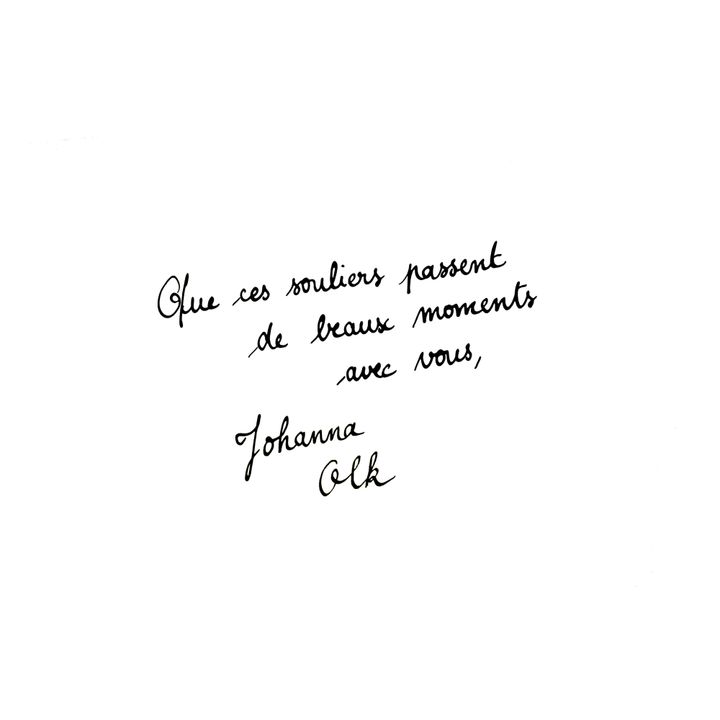 Que ces souliers passent
de beaux moments
avec vous,
Johanna
Olk